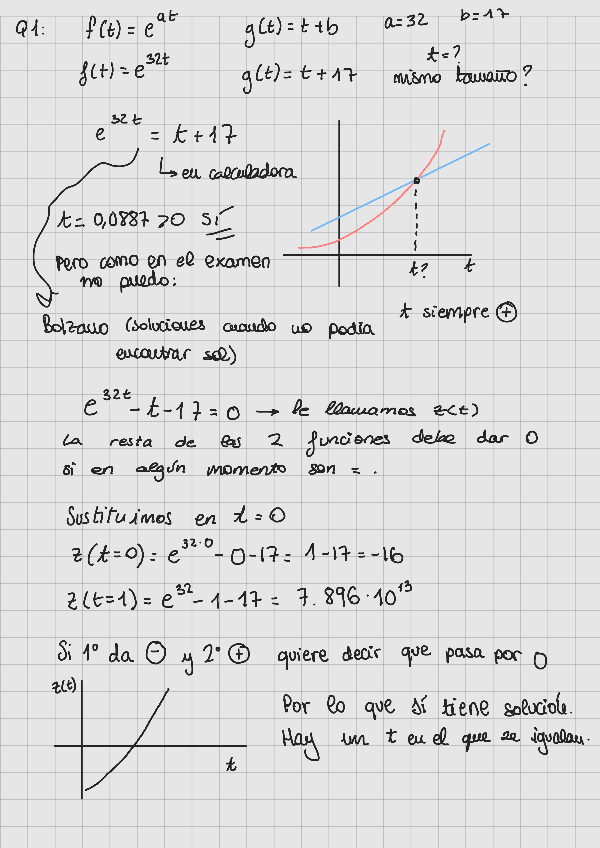 Q1: f(t) = e^{at} g(t) = t + b a = 32 b = 17
f(t) = e^{32t} g(t) = t + 17 t = ?
mismo tamaño?
e^{32t} = t + 17
↳ en calculadora
t = 0,0887 > 0 sí
t?
t
Pero como en el examen
no puedo:
t siempre ⊕
Bolzano (soluciones cuando no podía
encontrar sol)
e^{32t} - t - 17 = 0 → le llamamos z(t)
La resta de las 2 funciones debe dar 0
si en algún momento son = .
Sustituimos en t = 0
z(t=0) = e^{32·0} - 0 - 17 = 1 - 17 = -16
z(t=1) = e^{32} - 1 - 17 = 7.896 · 10^{13}
Si 1º da ⊖ y 2º ⊕ quiere decir que pasa por 0
z(t)
t
Por lo que sí tiene solución.
Hay un t en el que se igualan.